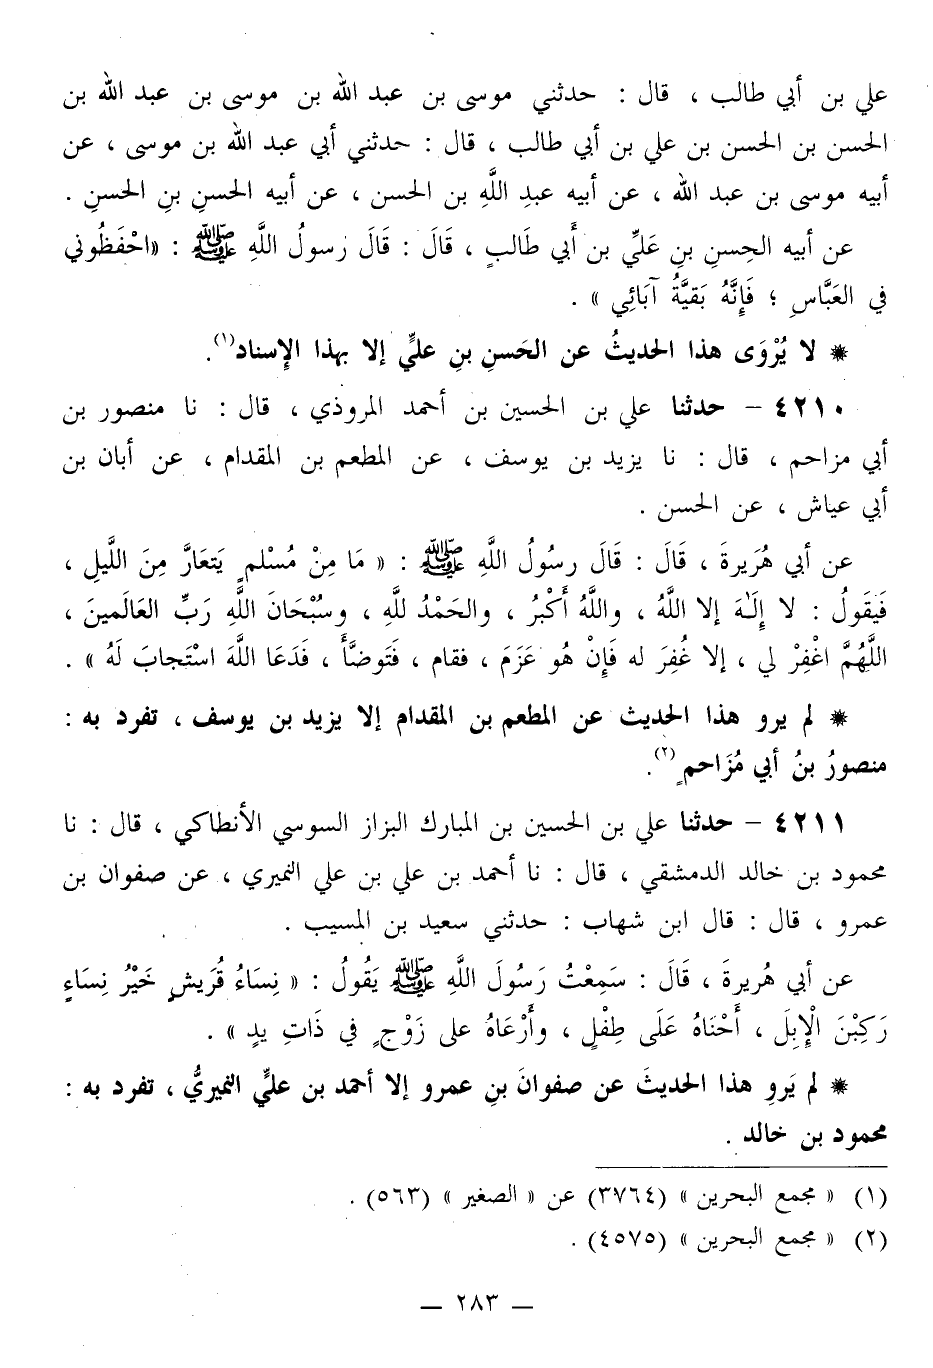 علي بن أبي طالب ، قال : حدثني موسى بن عبد الله بن موسى بن عبد الله بن
الحسن بن الحسن بن علي بن أبي طالب ، قال : حدثني أبي عبد الله بن موسى ، عن
أبيه موسى بن عبد الله ، عن أبيه عبدِ اللَّهِ بن الحسن ، عن أبيه الحسنِ بنِ الحسنِ .
عن أبيه الحِسنِ بنِ عَليِّ بن أَبي طَالبٍ ، قَالَ : قَالَ رَسولُ اللَّهِ ﷺ : «احْفَظُوني
في العَبَّاسِ ؛ فَإِنَّهُ بَقيَّةُ آبَائِي » .
* لا يُرْوَى هذا الحديثُ عن الحَسنِ بنِ عليٍّ إلا بهذا الإِسناد(١).
٤٢١٠ - حدثنا علي بن الحسين بن أحمد المروذي ، قال : نا منصور بن
أبي مزاحم ، قال : نا يزيد بن يوسف ، عن المطعم بن المقدام ، عن أبان بن
أبي عياش ، عن الحسن .
عن أبي هُرَيرةَ ، قَالَ : قَالَ رسُولُ اللَّهِ ﷺ : « مَا مِنْ مُسْلمٍ يَتعَارَّ مِنَ الليلِ ،
فَيَقولُ : لا إِلَـٰهَ إلا اللَّهُ ، واللَّهُ أَكْبرُ ، والحَمْدُ للَّهِ ، وسُبْحَانَ اللَّهِ رَبِّ العَالَمينَ ،
اللَّهُمَّ اغْفِرْ لي ، إلا غُفِرَ له فَإِنْ هُو عَزَمَ ، فقام ، فَتَوضَّأَ ، فَدَعَا اللَّهَ اسْتَجابَ لَهُ » .
* لم يرو هذا الحديث عن المطعم بن المقدام إلا يزيد بن يوسف ، تفرد به :
منصورُ بنُ أبي مُزَاحمٍ(٢).
٤٢١١ - حدثنا علي بن الحسين بن المبارك البزاز السوسي الأنطاكي ، قال : نا
محمود بن خالد الدمشقي ، قال : نا أحمد بن علي بن علي النميري ، عن صفوان بن
عمرو ، قال : قال ابن شهاب : حدثني سعيد بن المسيب .
عن أبي هُريرةَ ، قَالَ : سَمِعْتُ رَسُولَ اللَّهِ ﷺ يَقُولُ : « نِسَاءُ قُرَيشٍ خَيْرُ نِساءٍ
رَكِبْنَ الْإِبلَ ، أَحْنَاهُ عَلَى طِفْلٍ ، وأَرْعَاهُ على زَوْجٍ في ذَاتِ يدٍ » .
* لم يَروِ هذا الحديثَ عن صفوانَ بنِ عمرو إلا أحمد بن عليٍّ النميريُّ ، تفرد به :
محمود بن خالد .
(١) « مجمع البحرين » (٣٧٦٤) عن « الصغير » (٥٦٣) .
(٢) « مجمع البحرين » (٤٥٧٥) .
— ٢٨٣ —